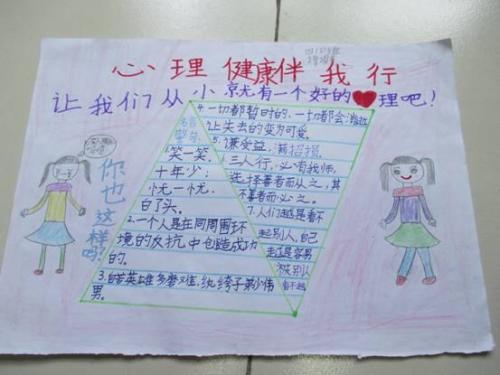 心理健康伴我行
让我们从小就有一个好的理吧!
你也
这样吗
1.笑一笑,
十年少;
忧一忧,
白了头。
2.一个人是在同周围环
境的反抗中创造成功
的。
3.自古英雄多磨难,纨绔子弟少伟
男。
4.一切都暂时的,一切都会消逝
让失去的变为可爱。
5.谦受益,满招损。
三人行,必有我师,
选择善者而从之,其
不善者而改之。
7.人们越是看不
起别人,自己
越是容易
被别人
看不起